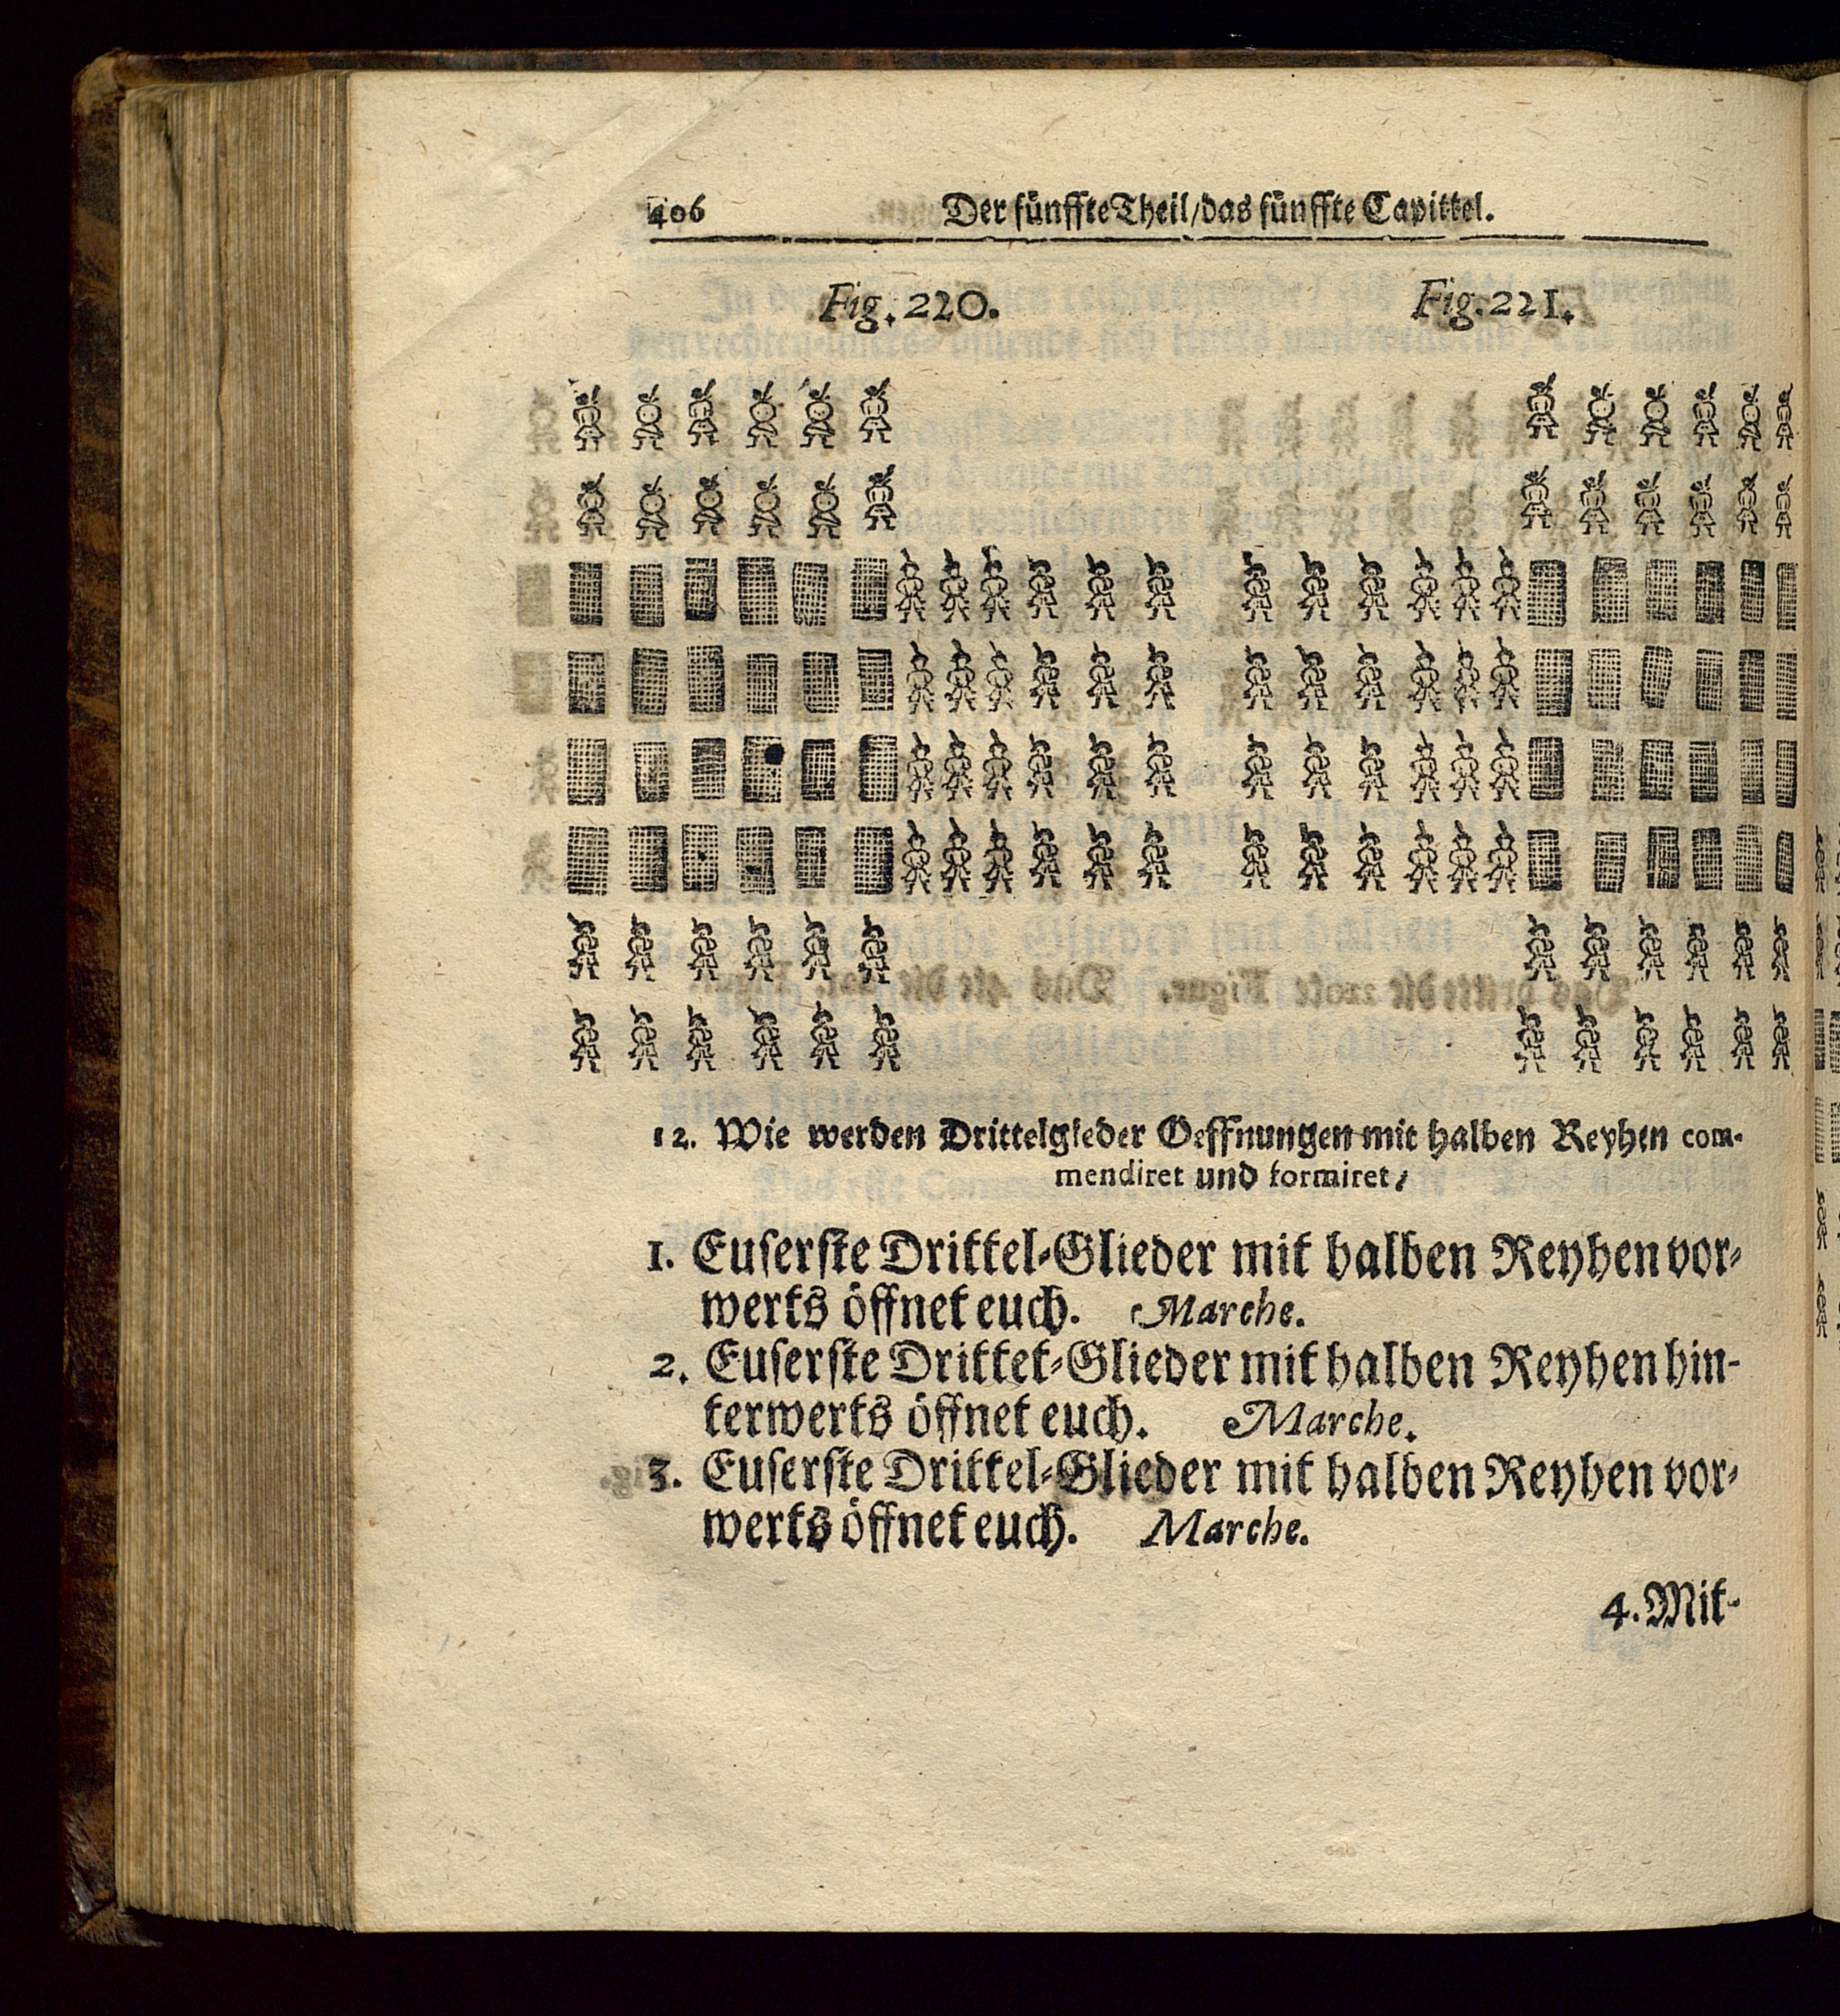 406 Der fünffte Theil/das fünffte Capittel.
Fig. 220. Fig. 221.
12. Wie werden Drittelglieder Oeffnungen mit halben Reyhen com-
mendiret und formiret/
1. Euserste Drittel-Glieder mit halben Reyhen vor-
werts öffnet euch. Marche.
2. Euserste Drittet-Glieder mit halben Reyhen hin-
terwerts öffnet euch. Marche.
3. Euserste Drittel-Glieder mit halben Reyhen vor-
werts öffnet euch. Marche.
4. Mit-